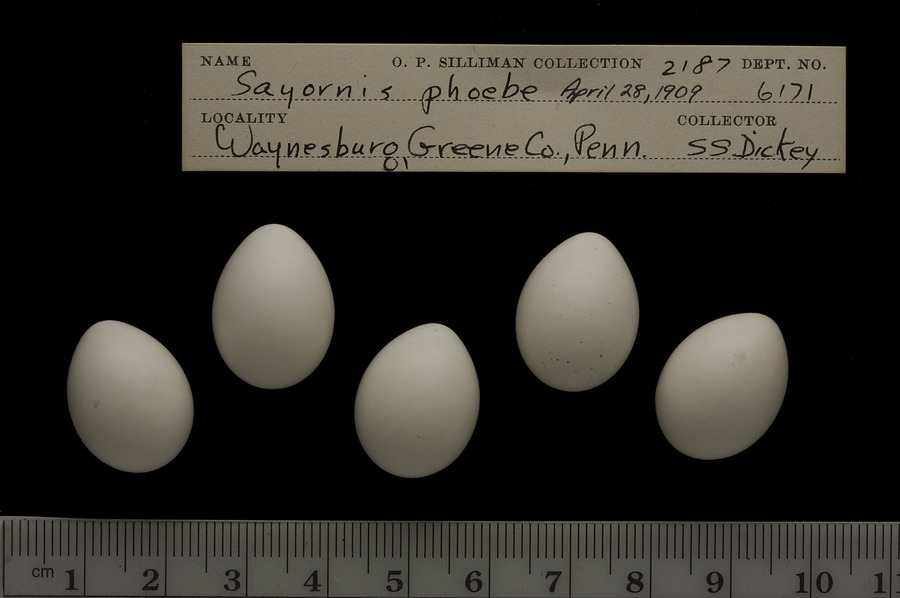 NAME O. P. SILLIMAN COLLECTION 2187 DEPT. NO.
Sayornis phoebe April 28, 1909 6171
LOCALITY COLLECTOR
Waynesburg Greene Co., Penn. SS Dickey
cm 1 2 3 4 5 6 7 8 9 10 1